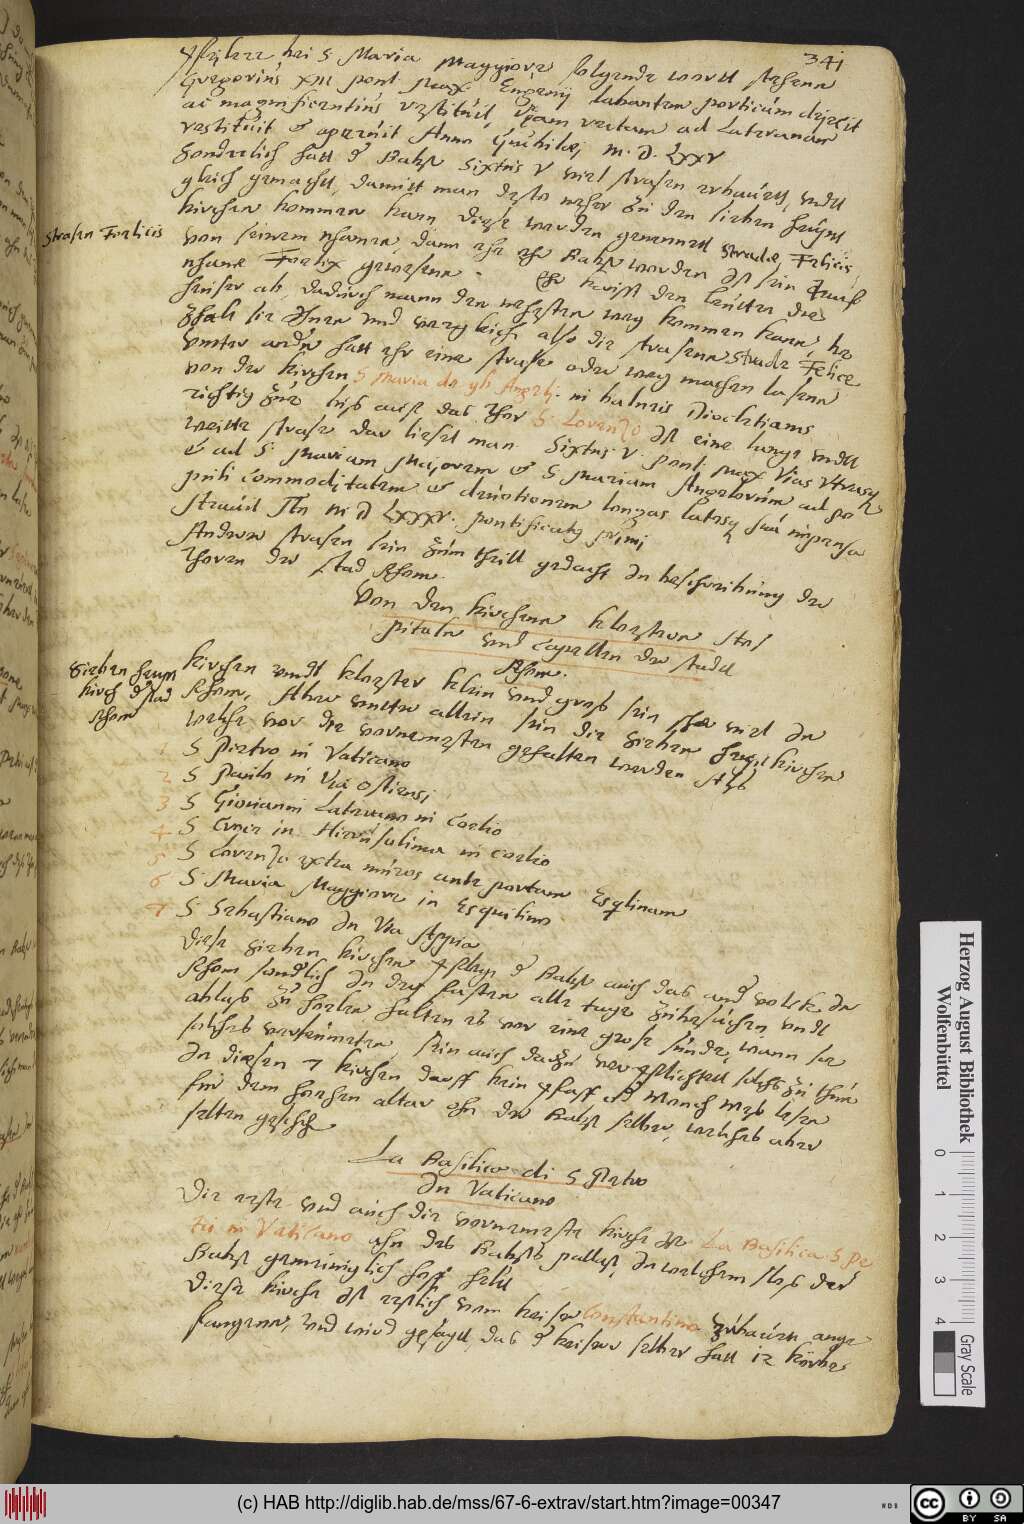 341
bei S. Maria Maggiore folgende wortt stehenn
Gregorius XIII pont. Max. Eugenij labantem porticum dejecit
ac magnificentius restituit, viam rectam ad Lateranum
restituit & aperuit Anno Jubilei M. D. LXXV
Sonderlich hatt d Babst Sixtus V viel strasen erbauett, vndt
gleich gemacht, damitt man desto neher zu den sieben haupt
kirchen kommen kann diese werden genennett Strade Felicis
Strasen Foelicis
von seinem nhamen, dann ehr ehe Babst worden ist sein Tauf
nhame Foelix gewesenn.
heuser ab, dadurch mann den nehesten weg kommen kann,
vnd vergleich also die strasenn Strada Felice
vnter andern hatt ehr eine strase oder weg machen lasenn
von der kirchen S Maria de gli Angeli in balneis Diocletians
richtig bis auff das thor S. Lorenzo ist eine lange vndt
weitte strase dar lieset man Sixtus V. pont. Max Vias Vtrasq
& ad S. Mariam Majorem & S Mariam Angelorum ad po
puli commoditatem & devotionem longas latasq sua inpensa
stravit An M D LXXXV. pontificatus primi
Andere strasen sein zum theill gedacht in beschreibung der
thoren der stad Rhom.
Von den kirchenn klostern Hos
pitaln vnd Capellen der stadt
Rhom.
Sieben haupt
kirch d stad
Rhom
kirchen vundt kloster klein vnd gros sein sehr viel in
Rhom, Aber vnter allen sein die sieben haupt kirchen
welche vor die vornemesten gehalten werden Als
1 S Pietro in Vaticano
2 S Paulo in Via Ostiensi
3 S Giouanni Laterano in Coelio
4 S Croce in Hierusalima in Coelio
5 S Lorenzo extra muros ante portam Esqlinam
6 S. Maria Maggiore in Esquilino
7 S Sebastiano in Via Appia
Diese sieben kirchen pfleget d Babst auch das and volck in
Rhom sonderlich in der fasten alle tage zubesuchen vndt
ablas zu holen halten es vor eine grose sunde, wann sie
solches verseumeten, sein auch dazu verpflichtett solchs zu thun
In diesen 7 kirchen darff kein pfaff od Monch Mes lesen
fur dem hochen altar ehn der Babst selber, welches aber
selten geschicht
La Basilica di S Pietro
In Vaticano
Die erste vnd auch die vornemeste kirche ist La Basilica S Pe
tri in Vaticano ahn des Babsts pallast, in welchem stets der
Babst gemeiniglich hoff helt
Diese kirche ist erstlich vom keiser Constantino zubauen ange
fangenn, vnd wird gesagtt, das d keiser selber hatt 12 körbe
Herzog August Bibliothek
Wolfenbüttel
0 1 2 3 4
Gray Scale
(c) HAB http://diglib.hab.de/mss/67-6-extrav/start.htm?image=00347
WDB
CC BY SA